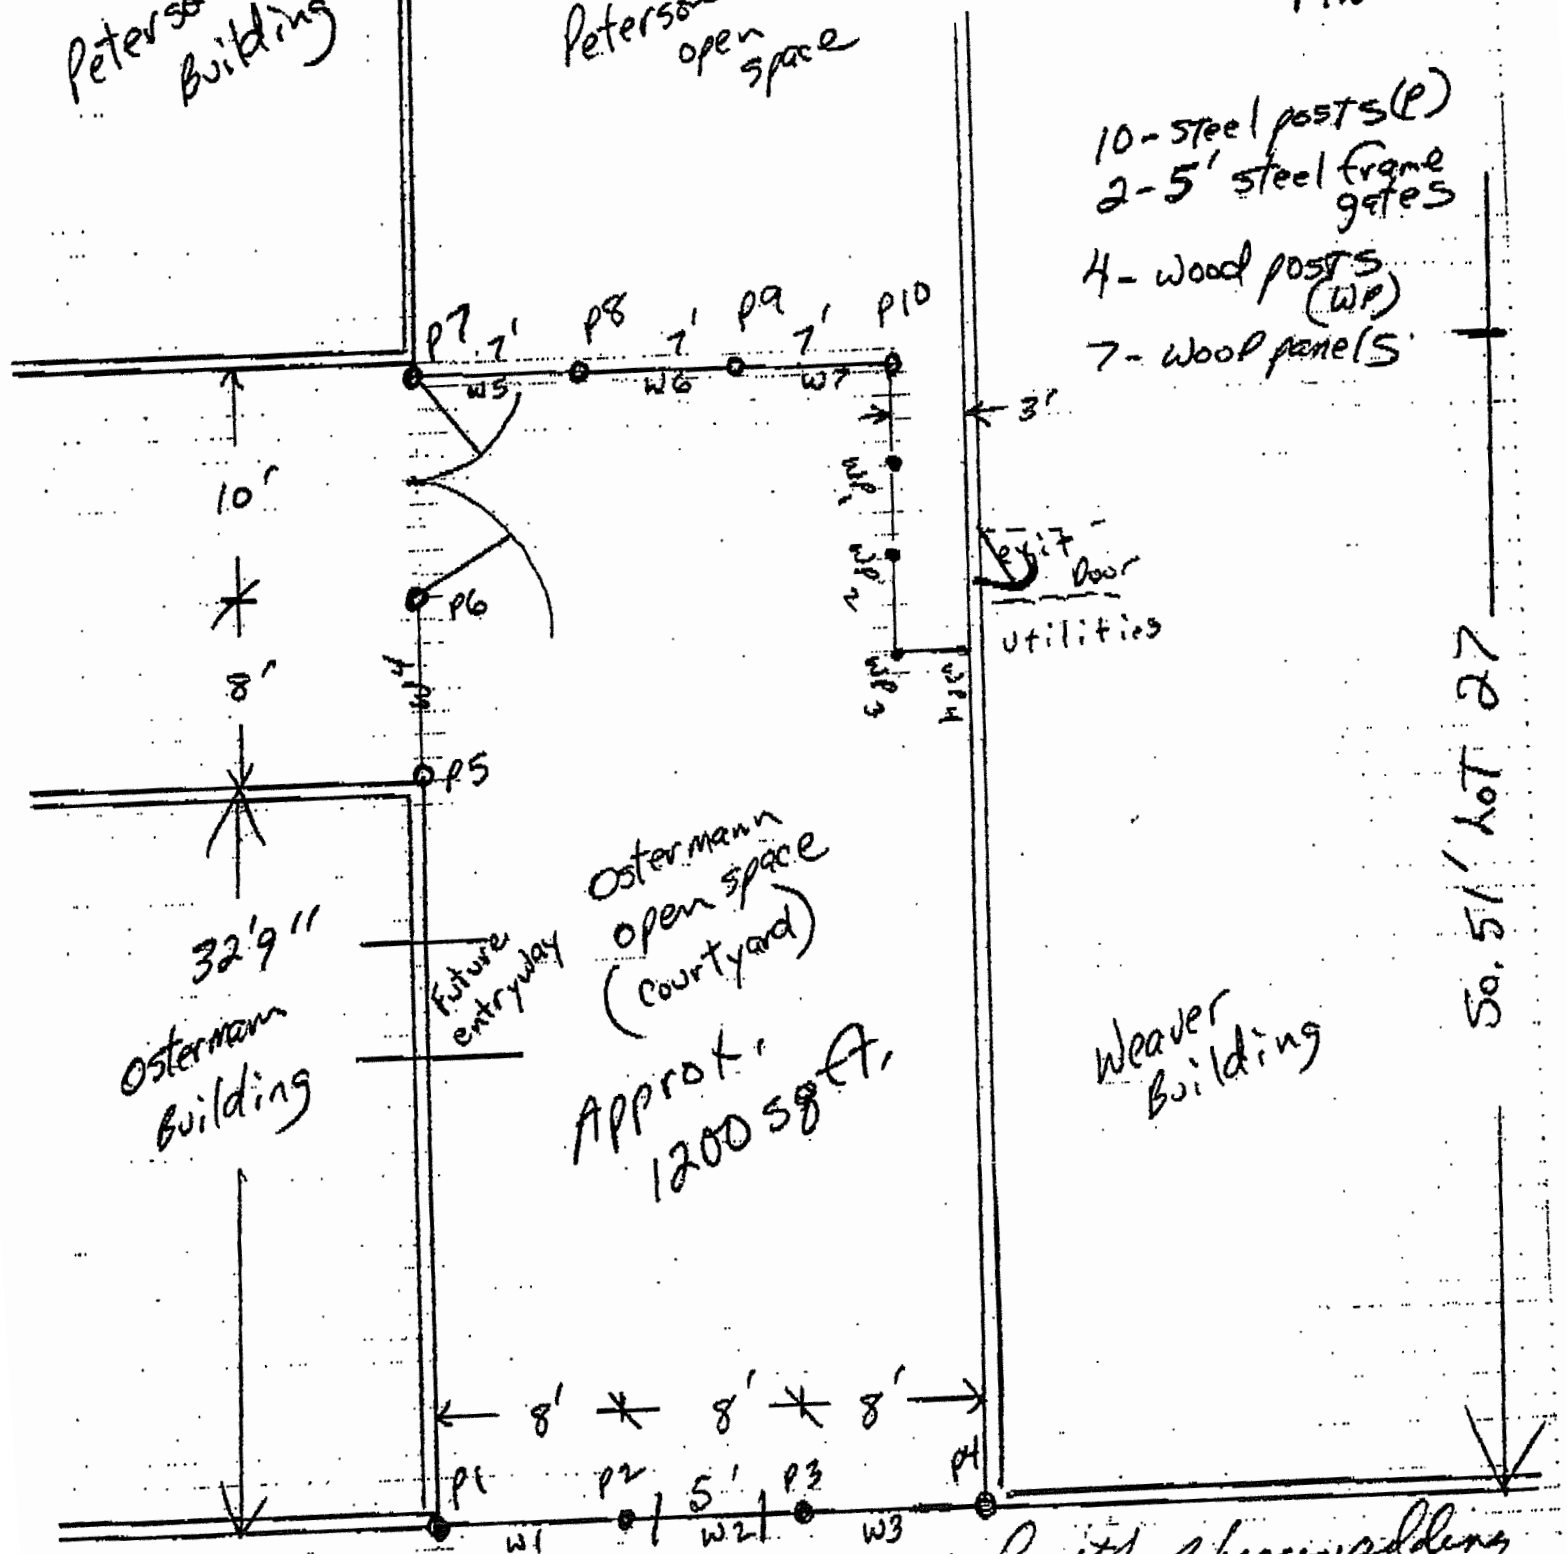 Building
open
space
10 - steel posts (P)
2 - 5' steel frame
gates
4 - wood posts
(WP)
7 - wood panels
P7 7' P8 7' P9 7' P10
W5 W6 W7
3'
10'
WP 1
WP 2
exit
Door
utilities
P6
8'
W4
WP 3
WP 4
P5
So. 51' Lot 27
32'9"
Ostermann
Building
Future
entryway
Ostermann
open space
(Courtyard)
Approx.
1200 sq ft.
Weaver
Building
8' 8' 8'
P1 P2 5' P3 P4
W1 W2 W3